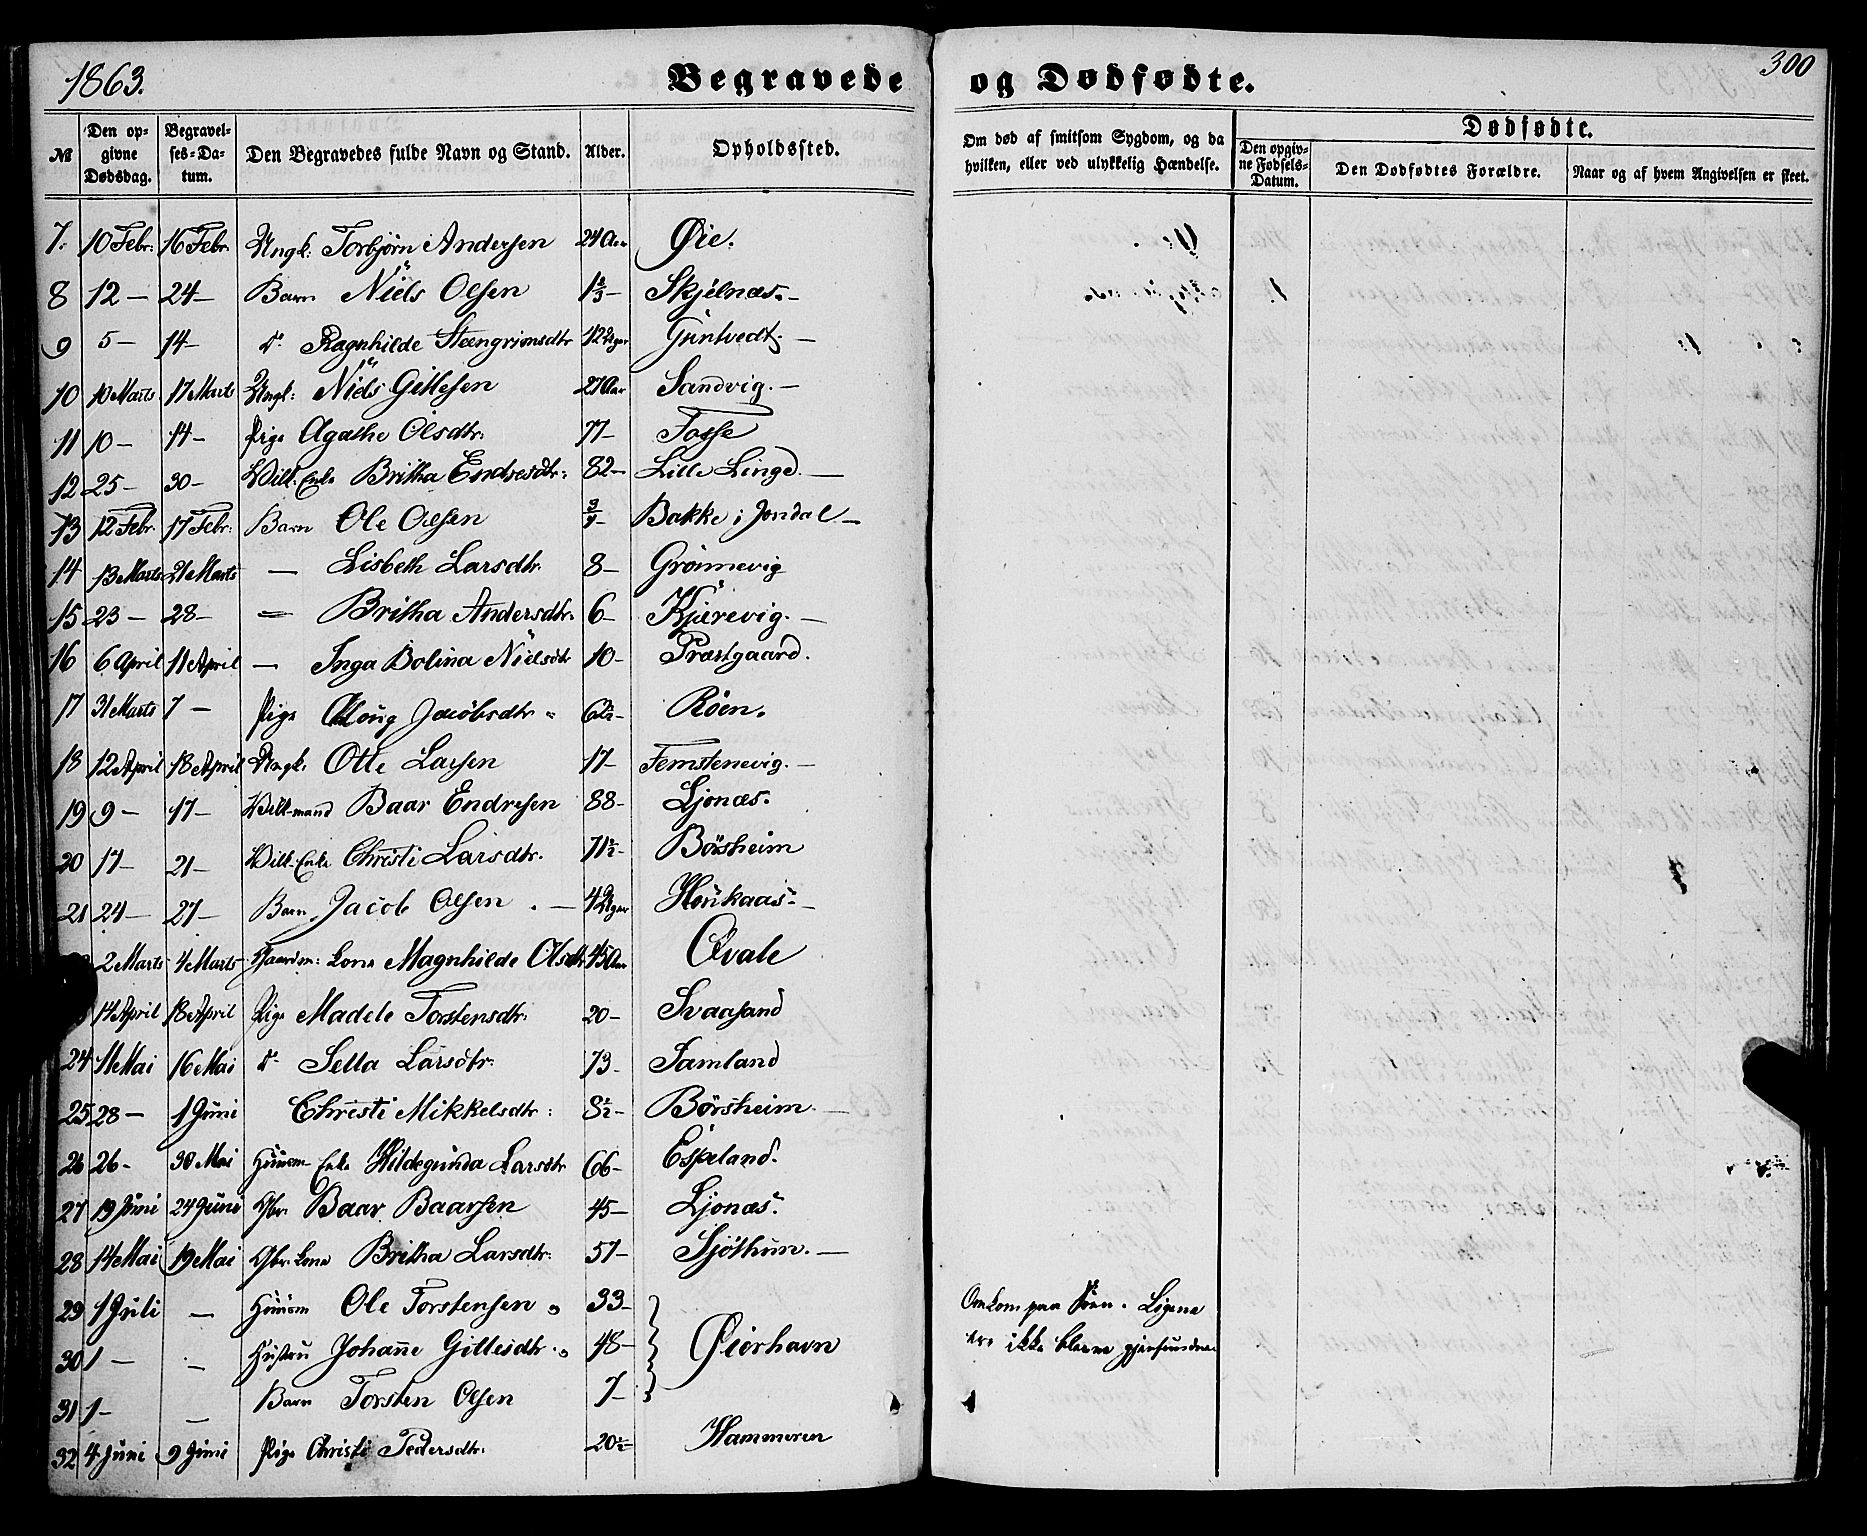 1863.
Begravede og Dødfødte.
300
№ Den op-givne Dødsdag. Begravel-ses-Da-tum. Den Begravedes fulde Navn og Stand. Alder. Opholdssted. Om død af smitsom Sygdom, og da hvilken, eller ved ulykkelig Hændelse. Dødfødte. Den opgiv-ne Fødsels-Datum. Den Dødfødtes Forældre. Naar og af hvem Angivelsen er skeet.
7. 10 Febr: 16 Febr. Ungk: Torbjørn Andersen 24 Aar Øie.
8 12 — 24 — Barn Niels Olsen Skjelnæs. —
9 5 — 14 — do Ragnhilde Steengrimsdtr 12 Uger Guntvedt. —
10 10 Marts 17 Marts Ungk: Niels Gittlesen 27 Aar Sandvig. —
11 10 — 14 — Pige Agathe Olsdtr. 77 — Fosse
12 25 — 30 — Vilk. Enke Britha Endresdtr: 82 — Lille Linge. —
13 12 Febr. 17 Febr: Barn Ole Olsen Bakke i Jondal —
14 13 Marts 21 Marts — Lisbeth Larsdtr. 8 — Grønnevig
15 23 — 28 — — Britha Andersdtr. 6 — Kjærevig. —
16 6 April 11 April — Inga Bolina Nielsdtr 10 — Præstgaard.
17 31 Marts 7 — Pige Jacobsdtr Röen.
18 12 April 18 April Ungk. Otte Larsen 17 — Femstenevig. —
19 9 — 17 — Vilk-mand Baar Endresen 88 — Ljonæs.
20 17 — 21 — Vilk-Enke Christi Larsdtr. 71½ — Börsheim
21 24 — 27 — Barn Jacob Olsen. — 4 Uger Houkaas. —
2 Marts 4 Marts Gaardm: Kone Magnhilde Olsdtr 45 Aar Qvale
14 April 18 April Pige Madele Torstensdtr. 20 — Svaasand
24 11 Mai 16 Mai do Sella Larsdtr. 73 — Samland
25 28 — 1 Juni Christi Mikkelsdtr: 8½ — Börsheim. —
26 26 — 30 Mai Huusm Enke Hildegunda Larsdtr 66 — Espeland.
27 19 Juni 24 Juni Gbr. Baar Baarsen 45 — Ljonæs.
28 14 Mai 19 Mai Gbr. Kone Britha Larsdtr. 57 — Sjöthun. —
29 1 Juli — Huusm Ole Torstensen 33 — Omkom paa Söen. Ligene
30 1 — — Hustru Johanne Gittlesdtr. 48 — Øierhavn ere ikke blevne gjenfundne
31 1 — — Barn Torsten Olsen 7 —
32 4 Juni 9 Juni Pige Christi Pedersdtr. 20½ — Hammeren